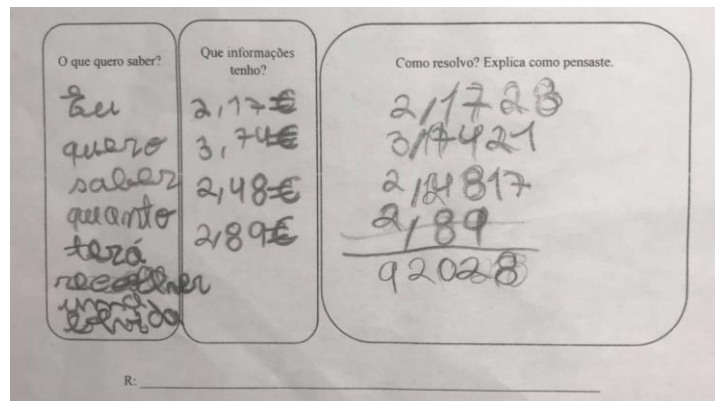 O que quero saber?
Eu
quero
saber
quanto
terá
recolher
Que informações
tenho?
2,17€
3,74€
2,48€
2,89€
Como resolvo? Explica como pensaste.
2,1728
3,17421
2,21817
2,89
92028
R: